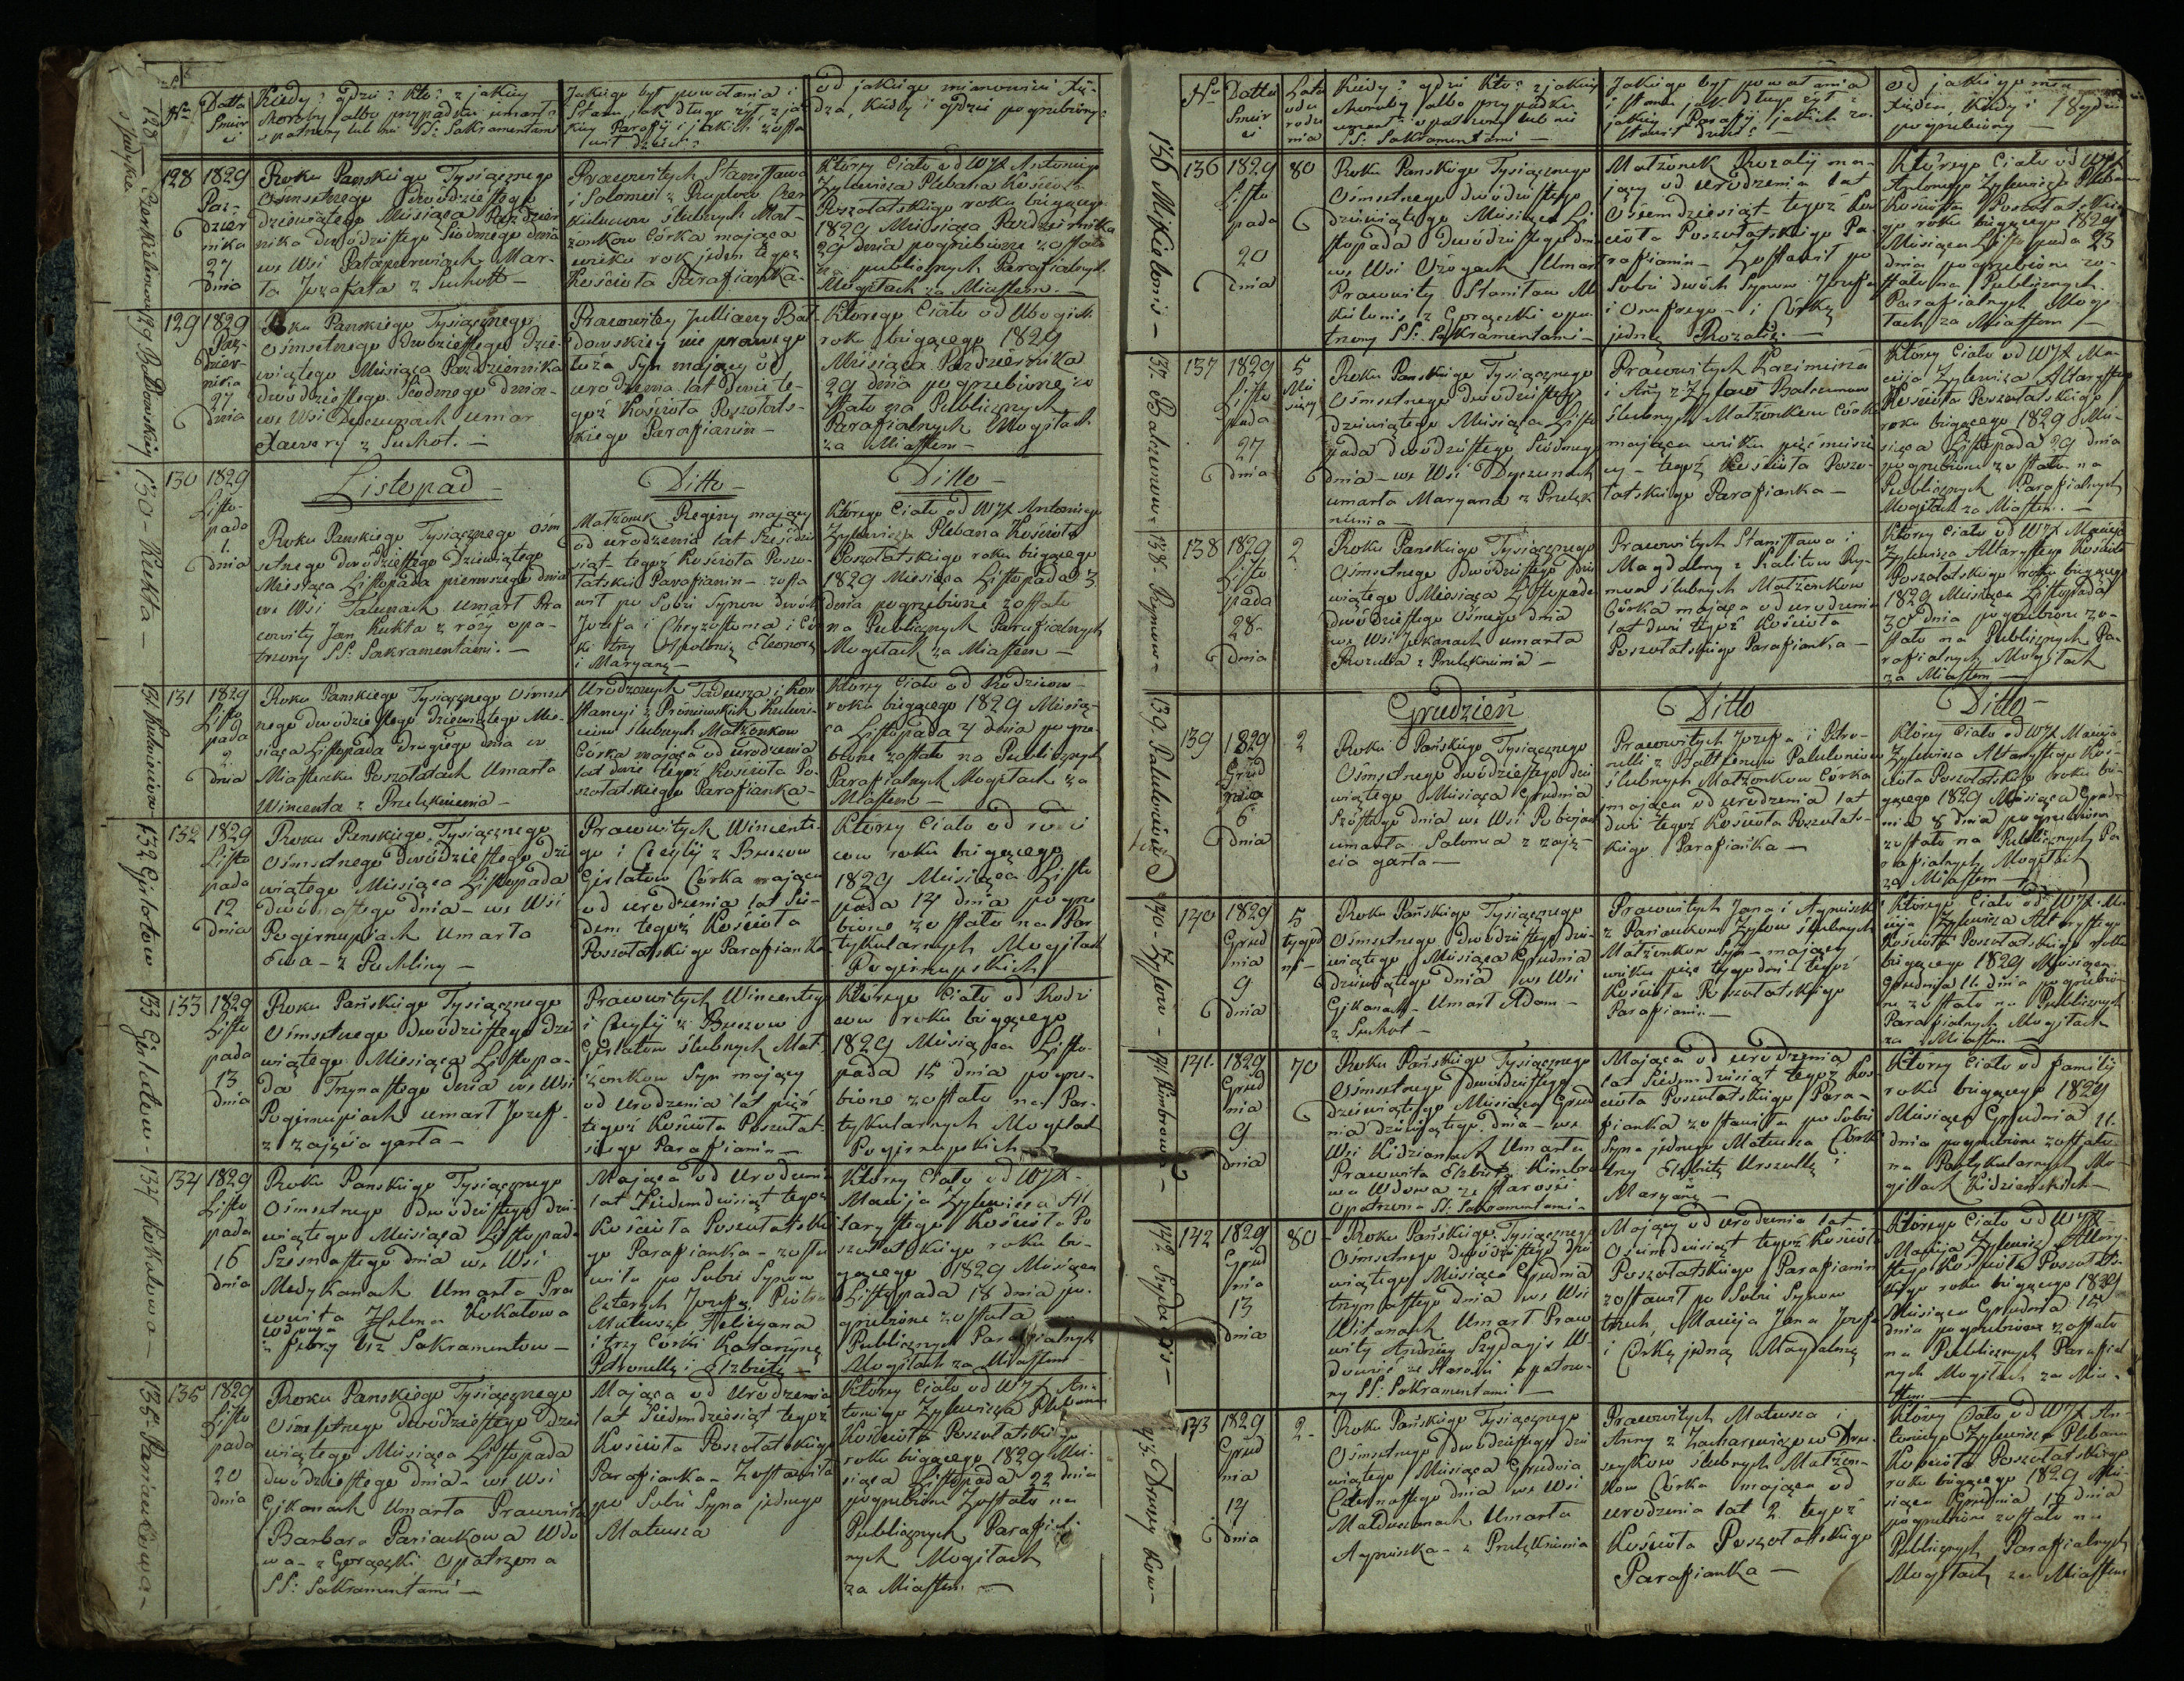 Nro
Datta Śmierci
Kiedy? gdzie? Kto? z jakiey
choroby albo przypadku umarł?
opatrzony lub nie SS: Sakramentami
Jakiego był powołania i
Stanu, jak długo żył, z ja-
kiey Parafij i jakich zosta-
wił dzieci?
od jakiego mianowicie Xię-
dza, kiedy i gdzie pogrzebiony?
128
1829
Paz-
dzier
nika
27
dnia
Roku Panskiego Tysiącznego
Ośmsetnego dwódziestego
dziewiątego Miesiąca Pazdzier
nika dwódziestego Siodmego dnia
we Wsi
Mar-
ta Jozafata z Suchott —
Prawowitych Stanisława
i Salomei z
ślubnych Mał-
żonkow Córka mająca
wieku rok jeden tegoż
Kościoła Parafianka —
Ktorey Ciało od WJX Antoniego
Żylewicza Plebana Kościoła
Poszołatskiego roku biegącego
1829 Miesiąca Pazdziernika
29 dnia pogrzebione zostało
na publicznych Parafialnych
Mogiłach za Miastem. —
129
1829
Paz-
dzier-
nika
27
dnia
Roku Panskiego Tysiącznego
Ośmsetnego dwódziestego dzie-
wiątego Miesiąca Pazdziernika
dwódziestego Siodmego dnia —
we Wsi Dyrzunach umar
Xawery z Suchot. —
Prawowitey Julliany Bał-
dowskiey nie prawego
łoża Syn mający od
urodzenia lat dwie te-
goż Kościoła Poszołats-
kiego Parafianin —
Ktorego Ciało od Ubogich
roku biegącego 1829
Miesiąca Pazdziernika
29 dnia pogrzebione zo
stało na Publicznych
Parafialnych Mogiłach
za Miastem —
130
1829
Listo-
pada
1.
dnia
Listopad —
Roku Panskiego Tysiącznego Ośm
setnego dwódziestego Dziewiątego
Miesiąca Listopada pierwszego dnia
we Wsi Talunach umarł Pra
wowity Jan Kukta z róży opa-
trzony SS: Sakramentami. —
Ditto —
Małżonek Reginy mający
od urodzenia lat Sześćdzie
siąt — tegoż Kościoła Poszo-
łatskie Parafianin — zosta
wił po Sobie Synow dwóch
Jozefa i Chryzostoma i Cór
ki trzy Appolonię Eleonorę
i Maryanę —
Ditto —
Ktorego Ciało od WJX Antoniego
Żylewicza Plebana Kościoła
Poszołatskiego roku biegącego
1829 Miesiąca Listopada 3
dnia pogrzebione zostało
na Publicznych Parafialnych
Mogiłach za Miastem —
131
1829
Listo
pada
2
dnia
Roku Panskiego Tysiącznego Ośmset
nego dwódziestego dziewiątego Mie-
siąca Listopada drugiego dnia w
Miasteczku Poszołatach Umarła
Wincenta z Przelęknienia —
Urodzonych Tadeusza i Kon
stancyi z
ślubnych Małżonkow
Córka mająca od urodzenia
lat dwie tegoż Kościoła Po-
szołatskiego Parafianka —
Ktorey Ciało od Rodzicow —
roku biegącego 1829 Miesią-
ca Listopada 4 dnia pogrze-
bione zostało na Publicznych
Parafialnych Mogiłach za
Miastem —
132
1829
Listo
pada
12
dnia
Roku Panskiego Tysiącznego
Ośmsetnego dwódziestego dzie
wiątego Miesiąca Listopada
dwónastego dnia — we Wsi
Pogirnupiach umarła
Ewa — z Puchliny —
Prawowitych Wincente-
go i Cecylij z Buczow
Gierlatow Córka mająca
od urodzenia lat Sie-
dem tegoż Kościoła
Poszołatskiego Parafianka
Ktorey Ciało od rodzi
cow roku biegącego
1829 Miesiąca Listo
pada 14 dnia pogrze
bione zostało na Par
tykularnych Mogiłach
Pogirnupskich
133
1829
Listo
pada
13
dnia
Roku Pańskiego Tysiącznego
Ośmsetnego dwódziestego dzie
wiątego Miesiąca Listopa-
da Trzynastego dnia we Wsi
Pogirnupiach umarł Jozef —
z zajęcia garła —
Prawowitych Wincentego
i Cecylij z Buczow
Gierlatow ślubnych Mał-
żonkow Syn mający
od urodzenia lat pięć
tegoż Kościoła Poszołat-
skiego Parafianin —
Którego Ciało od Rodzi
cow roku biegącego
1829 Miesiąca Listo-
pada 15 dnia pogrze-
bione zostało na Par-
tykularnych Mogiłach
Pogirnupskich —
134
1829
Listo
pada
16
dnia
Roku Panskiego Tysiącznego
Ośmsetnego dwódziestego dzie-
wiątego Miesiąca Listopada
Szesnastego dnia we Wsi
Medykanach Umarła Pra
wowita Helena Kukałowa
wdowa
z febry bez Sakramentow —
Mająca od Urodzenia
lat Siedemdziesiąt tegoż
Kościoła Poszołatskie
go Parafianka — zosta
wiła po Sobie Synow
Czterech Jozefa, Piotra
Mateusza Felicyana
i trzy Córki Katarzynę
Petronellę i Elzbietę —
Ktorey Ciało od WJX —
Macieja Żylewicza Al
tarystego Kościoła Po
szołatskiego roku bie-
gącego 1829 Miesiąca
Listopada 18 dnia po-
grzebione zostało
Publicznych Parafialnych
Mogiłach za Miastem —
135
1829
Listo
pada
20
dnia
Roku Panskiego Tysiącznego
Ośmsetnego dwódziestego dzie
wiątego Miesiąca Listopada
dwódziestego dnia — we Wsi
Gikonach Umarła Prawowita
Barbara Paniaukowa Wdo
wa — z Gorączki Opatrzona
SS: Sakramentami —
Mająca od Urodzenia
lat Siedemdziesiąt tegoż
Kościoła Poszołatskiego
Parafianka — Zostawiła
po Sobie Syna jednego
Mateusza
Ktorey Ciało od WJX An-
toniego Żylewicza Plebana
Kościoła Poszołatskiego
roku biegącego 1829 Mie-
siąca Listopada 22 dnia
pogrzebione Zostało na
Publicznych Parafial-
nych Mogiłach
za Miastem —
Nro
Datta Śmierci
Lata od urodzenia
Kiedy? gdzie Kto? z jakiey
choroby albo przypadku
umarł? opatrzony lub nie
SS: Sakramentami —
Jakiego był powołania
i stanu jak długo żył z
jakiey Parafij jakich zo-
stawił dzieci? —
od jakiego
Xiędza, kiedy i gdzie
pogrzebiony —
136
1829
Listo
pada
20
dnia
80
Roku Panskiego Tysiącznego
Ośmsetnego dwódziestego
dziewiątego Miesiąca Li-
stopada dwódziestego dnia
we Wsi Ożogach Umarł
Prawowity Stanisław Mi
z Gorączki opa-
trzony SS: Sakramentami —
Małżonek Rozalij ma-
jący od urodzenia lat
Ośiemdziesiąt — tegoż Koś
cioła Poszołatskiego Pa-
rafianin — Zostawił po
Sobie dwóch Synow Jozefa
i Onufrego — i Córkę
jedną Rozalię. —
Którego Ciało od WJX
Antoniego Żylewicza Plebana
Kościoła Poszołatskie
go roku biegącego 1829
Miesiąca Listopada 23
dnia pogrzebione zo-
stało na Publicznych
Parafialnych Mogi-
łach za Miastem —
137
1829
Listo
pada
27
dnia
5
Mie
sięcy
Roku Panskiego Tysiącznego
Ośmsetnego dwódziestego
dziewiątego Miesiąca Listo
pada dwódziestego Siódmego
dnia — we Wsi Dyrzunach
umarła Maryana z Przelęk
nienia —
Prawowitych Kazimierza
i Anny z Żyłow Balcunow
ślubnych Małżonkow Córka
mająca wieku pięć miesię
cy — tegoż Kościoła Poszo-
łatskiego Parafianka —
Ktorey Ciało od WJX Ma-
cieja Żylewicza Altarystego
Kościoła Poszołatskiego
roku biegącego 1829 Mie-
siąca Listopada 29 dnia
pogrzebione zostało na
Publicznych Parafialnych
Mogiłach za Miastem. —
138
1829
Listo
pada
28
dnia
2
Roku Panskiego Tysiącznego
Ośmsetnego dwódziestego dzie
wiątego Miesiąca Listopada
dwódziestego Ośmego dnia
we Wsi Jukanach umarła
Rozalia z Przelęknienia —
Prawowitych Stanisława i
Magdaleny z Ry-
mow ślubnych Małżonkow
Córka mająca od urodzenia
lat dwie tegoż Kościoła
Poszołatskiego Parafianka —
Ktorey Ciało od WJX Macieja
Żylewicza Altarystego Kościoła
Poszołatskiego roku biegącego
1829 Miesiąca Listopada
30 dnia pogrzebione zo-
stało na Publicznych Pa-
rafialnych Mogiłach
za Miastem —
139
1829
Grud
nia
6
dnia
2
Grudzień
Roku Pańskiego Tysiącznego
Ośmsetnego dwódziestego dzie
wiątego Miesiąca Grudnia
Szóstego dnia we Wsi
umarła Salomea z zaję-
cia garła —
Ditto
Prawowitych Jozefa i Petro-
nelli z
ślubnych Małżonkow Córka
mająca od urodzenia lat
dwie tegoż Kościoła Poszołats-
kiego Parafianka —
Ditto —
Ktorey Ciało od WJX Macieja
Żylewicza Altarystego Koś-
cioła Poszołatskiego roku bie-
gącego 1829 Miesiąca Grud-
nia 8 dnia pogrzebione
zostało na Publicznych Pa
rafialnych Mogiłach
za Miastem —
140
1829
Grud
nia
9
dnia
5
tygod
ni —
Roku Pańskiego Tysiącznego
Ośmsetnego dwódziestego dzie-
wiątego Miesiąca Grudnia
dziewiątego dnia we Wsi
Gikonach — Umarł Adam —
z Suchot —
Prawowitych Jana i Agnieszki
z Paniaukow Żyłow ślubnych
Małżonkow Syn — mający
wieku pięć tygodni tegoż
Kościoła Poszołatskiego
Parafianin —
Którego Ciało od WJX Ma-
cieja Żylewicza Altarystego
Kościoła Poszołatskiego roku
biegącego 1829 Miesiąca
Grudnia 11 dnia pogrzebio-
ne zostało na Publicznych
Parafialnych Mogiłach
za Miastem —
141
1829
Grud
nia
9
dnia
70
Roku Pańskiego Tysiącznego
Ośmsetnego dwódziestego
dziewiątego Miesiąca Grud
nia dziewiątego dnia — we
Wsi Kidzianach Umarła
Prawowita Elzbieta Kimbro
wa Wdowa ze Starości
Opatrzona SS. Sakramentami —
Mająca od urodzenia
lat Siedemdziesiąt tegoż Koś
cioła Poszołatskiego Para-
fianka zostawiła po Sobie
Syna jednego Mateusza Córki
trzy Elzbietę Urszullę i
Maryanę —
Ktorey Ciało od Familij
roku biegącego 1829
Miesiąca Grudnia 11
dnia pogrzebione zostało
na Partykularnych Mo-
giłach Kidzianskich —
142
1829
Grud
nia
13
dnia
80
Roku Pańskiego Tysiącznego
Ośmsetnego dwódziestego dzie
wiątego Miesiąca Grudnia
trzynastego dnia we Wsi
Witanach Umarł Prawo
wity Andrzey Szydagis W
dowiec ze Starości opatrzo-
ny SS: Sakramentami —
Mający od urodzenia lat
Ośiemdziesiąt tegoż Kościoła
Poszołatskiego Parafianin
zostawił po Sobie Synow
trzech, Macieja Jana Jozefa
i Córkę jedną Magdalenę
Którego Ciało od WJX
Macieja Żylewicza Altary-
stego Kościoła Poszołats-
kiego roku biegącego 1829
Miesiąca Grudnia 15
dnia pogrzebione zostało
na Publicznych Parafial
nych Mogiłach za Mia-
stem —
143
1829
Grud
nia
14
dnia
2
Roku Pańskiego Tysiącznego
Ośmsetnego dwódziestego dzie
wiątego Miesiąca Grudnia
Czternastego dnia we Wsi
Umarła
Agnieszka — z Przelęknienia
Prawowitych Mateusza i
Anny z Zacharewiczow Dru-
seykow ślubnych Małżon-
kow Córka mająca od
urodzenia lat 2 tegoż
Kościoła Poszołatskiego
Parafianka —
Ktorey Ciało od WJX An-
toniego Żylewicza Plebana
Kościoła Poszołatskiego
roku biegącego 1829 Mie-
siąca Grudnia 17 dnia
pogrzebione zostało na
Publicznych Parafialnych
Mogiłach za Miastem